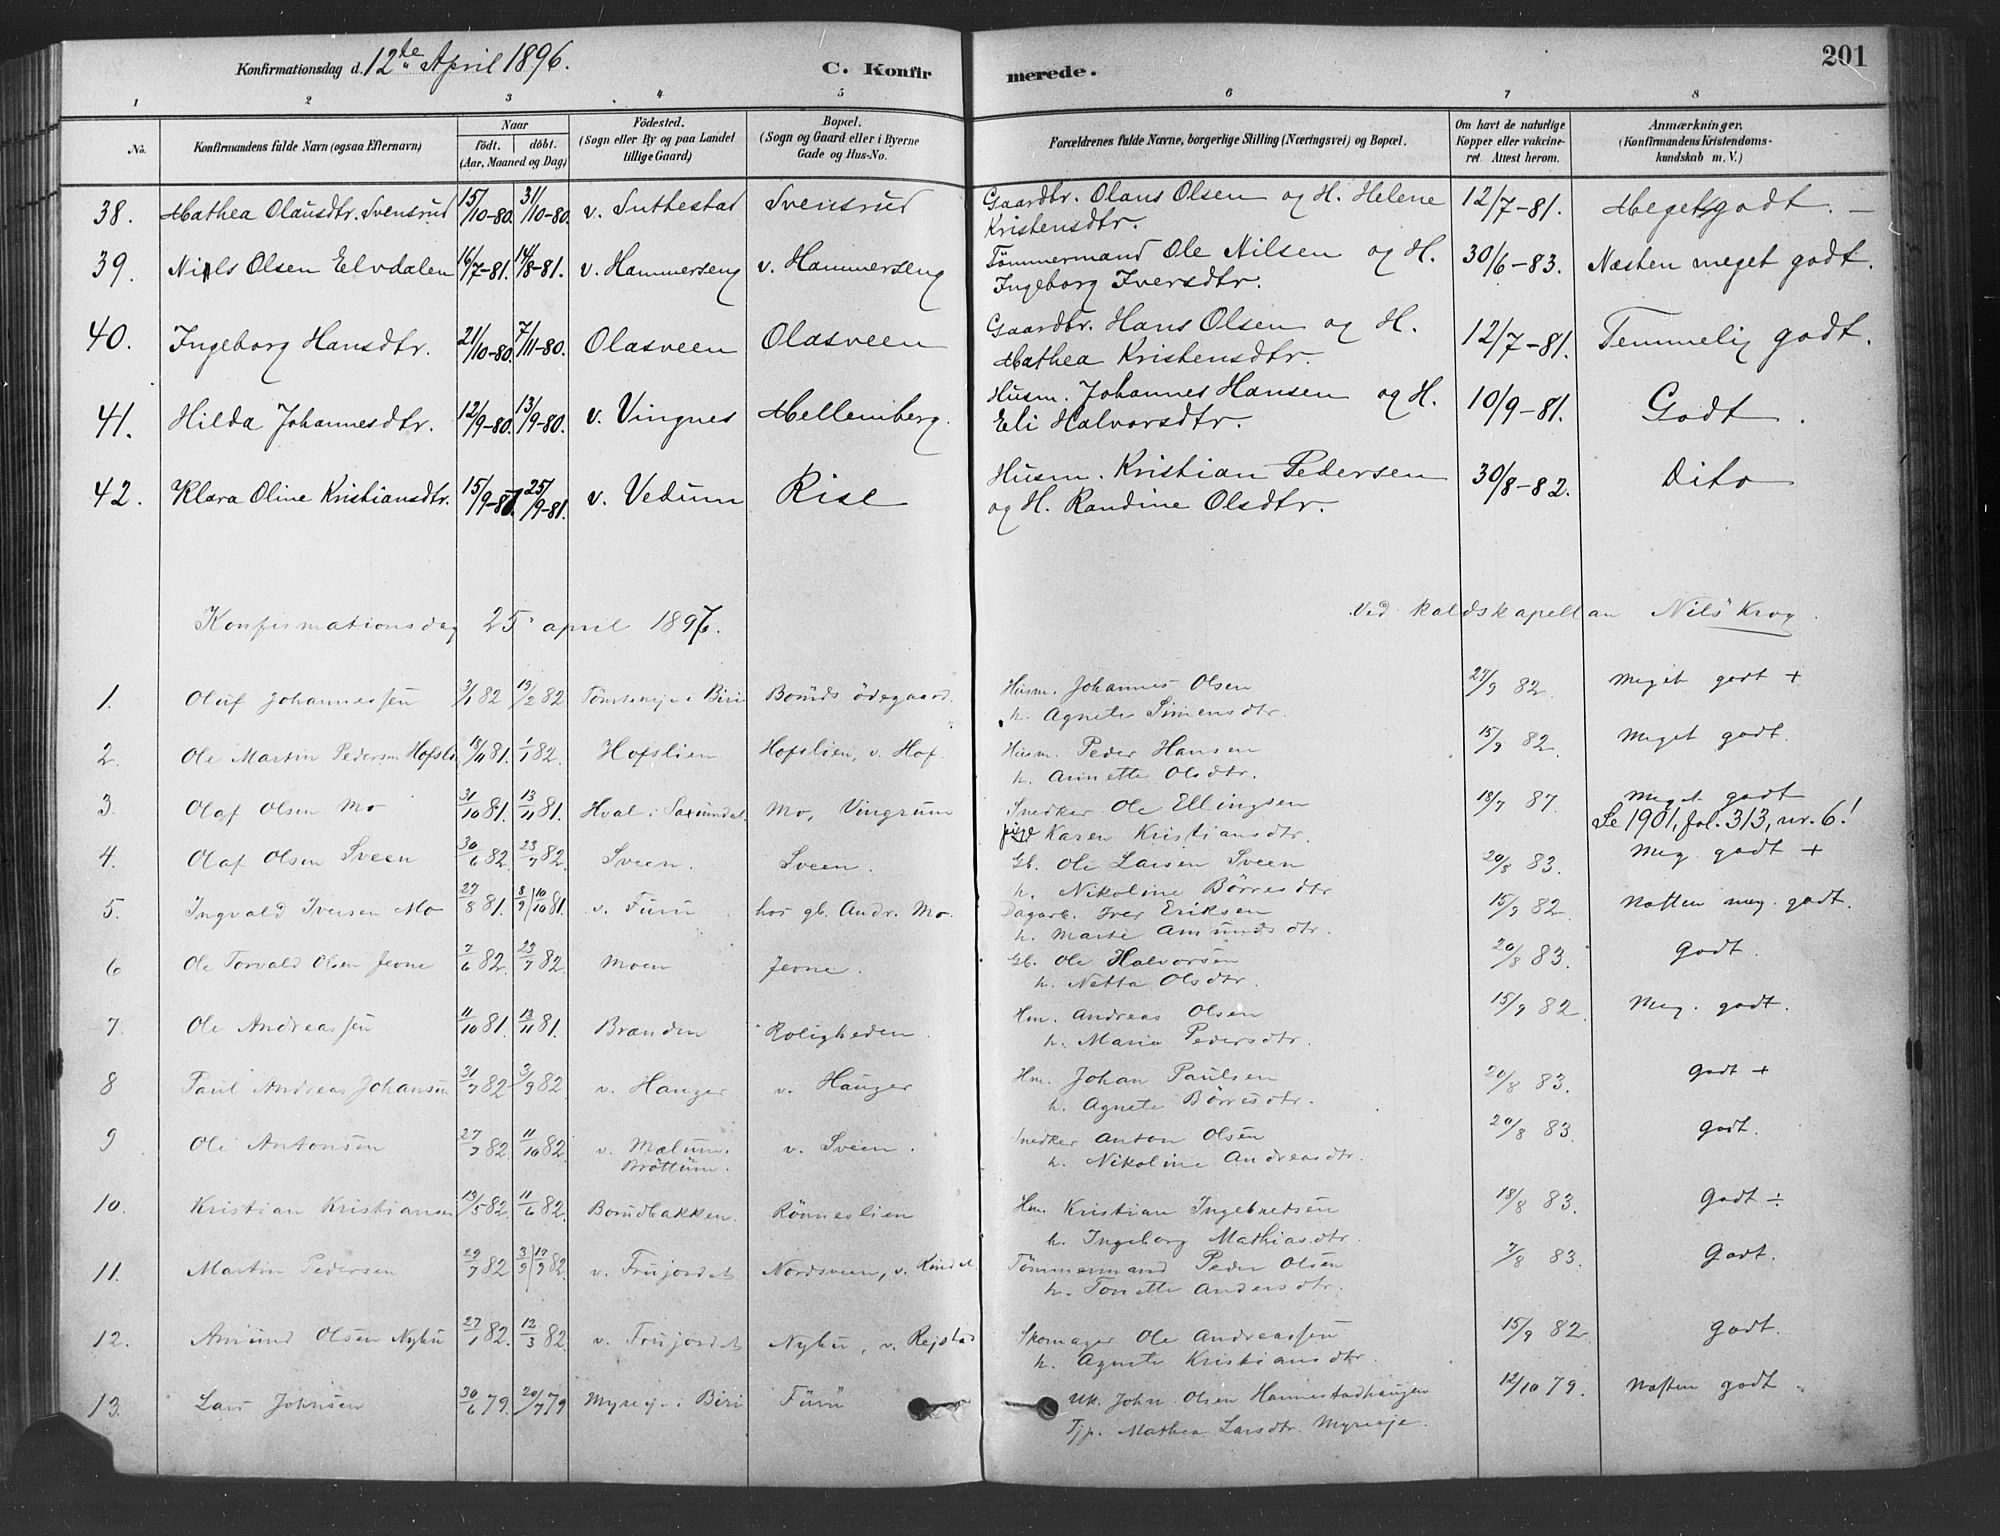 Konfirmationsdag d. 12te April 1896. C. Konfirmerede. 201
1 2 3 4 5 6 7 8
No. Konfirmandens fulde Navn (ogsaa Efternavn) Naar födt. döbt. (Aar, Maaned og Dag) Födested. (Sogn eller By og paa Landet tillige Gaard) Bopæl. (Sogn og Gaard eller i Byerne Gade og Hus-No. Forældrenes fulde Navne, borgerlige Stilling (Næringsvei) og Bopæl. Om havt de naturlige Kopper eller vakcineret. Attest herom. Anmærkninger. (Konfirmandens Kristendomskundskab m. V.)
38. Mathea Olausdtr. Svensrud 15/10-80. 31/10-80. v. Suttestad Svensrud Gaardbr. Olaus Olsen og H. Helene Kristensdtr. 12/7-81. Meget godt.
39. Nils Olsen Elvdalen 16/7-81. 14/8-81. v. Hammerseng v. Hammerseng Tömmermand Ole Nilsen og H. Ingeborg Iversdtr. 30/6-83. Næsten meget godt.
40. Ingeborg Hansdtr. 21/10-80. 7/11-80. Olasveen Olasveen Gaardbr. Hans Olsen og H. Mathea Kristensdtr. 12/7-81. Temmelig godt.
41. Hilda Johannesdtr. 12/9-80. 13/9-80. v. Vingnes Mellemberg. Husm. Johannes Hansen og H. Eli Halvorsdtr. 10/9-81. Godt.
42. Klara Oline Kristiansdtr. 15/9-81. 25/9-81. v. Vedum Rise Husm. Kristian Pedersen og H. Randine Olsdtr. 30/8-82. Dito
Konfirmationsdag 25 april 1897. Ved kaldskapellan Nils Krog.
1. Oluf Johannessen 3/1 82 19/2 82 i Biri ödegaard. Husm. Johannes Olsen
h. Agnete Simensdtr. 24/9 82. Meget godt +
2. Ole Martin Pedersen 19/11 81. 1/1 82. Hofslien Hofslien, v. Hof. Husm. Peder Hansen
h. Annette Olsdtr. 15/9 82. Meget godt.
3. Olaf Olsen Mo 31/10 81. 13/11 81. Hval i Saxumdal, Mo, Vingrum Snedker Ole Ellingsen
pige Karen Kristiansdtr. 18/7 87. Meget godt
Se 1901, fol. 313, nr. 6!
4. Olaf Olsen Sveen 30/6 82. 23/7 82. Sveen. Sveen. Gb. Ole Larsen Sveen
h. Nikoline Börresdtr 20/8 83. Meg. godt +
5. Ingvald Iversen Mo 27/8 81. 8/9 | 10/10 81. v. Furu hos gb. Andr. Mo. Dagarb. Iver Eriksen
h. Marte Amundsdtr. 15/9 82. Næsten meg. godt.
6 Ole Torvald Olsen Jevne 7/6 82. 23/7 82. Moen Jevne. Gb. Ole Halvorsen
h. Netta Olsdtr. 20/8 83. Godt.
7. Ole Andreassen 11/10 81. 13/11 81. Brænden Roligheden. Hm. Andreas Olsen
h. Marie Pedersdtr. 15/9 82. Meg. godt.
8 Paul Andreas Johansen 31/7 82. 3/9 82. v. Hauger v. Hauger Hm. Johan Paulsen
h. Agnete Börresdtr. 20/8 83. Godt +
9 Ole Antonsen 27/7 82. 11/10 82. v. Mælum. Bröttum. v. Sveen. Snedker Anton Olsen
h. Nikoline Andreasdtr. 20/8 83. Godt.
10. Kristian Kristiansen 13/5 82. 11/6 82. Borudbakken. Rönneslien Hm. Kristian Ingebretsen
h. Ingeborg Mathiasdtr. 18/8 83. Godt ÷
11. Martin Pedersen 29/7 82. 3/9 | 17/9 82. v. Frujordet Nordsveen, v. Tömmermand Peder Olsen
h. Tonette Andersdtr. 7/8 83. Godt.
12. Amund Olsen Nybu 27/1 82. 12/3 82. v. Frujordet Nybu, v. Rejstad Skomager Ole Andreassen
h. Agnete Kristiansdtr. 15/9 82 Godt.
13. Lars Johnsen 30/6 79. 20/7 79 Myreeje i Biri Furu Uk. John Olsen Hannestadhaugen
Tjp. Mathea Larsdtr. Myreeje. 12/10 79. Næsten godt.